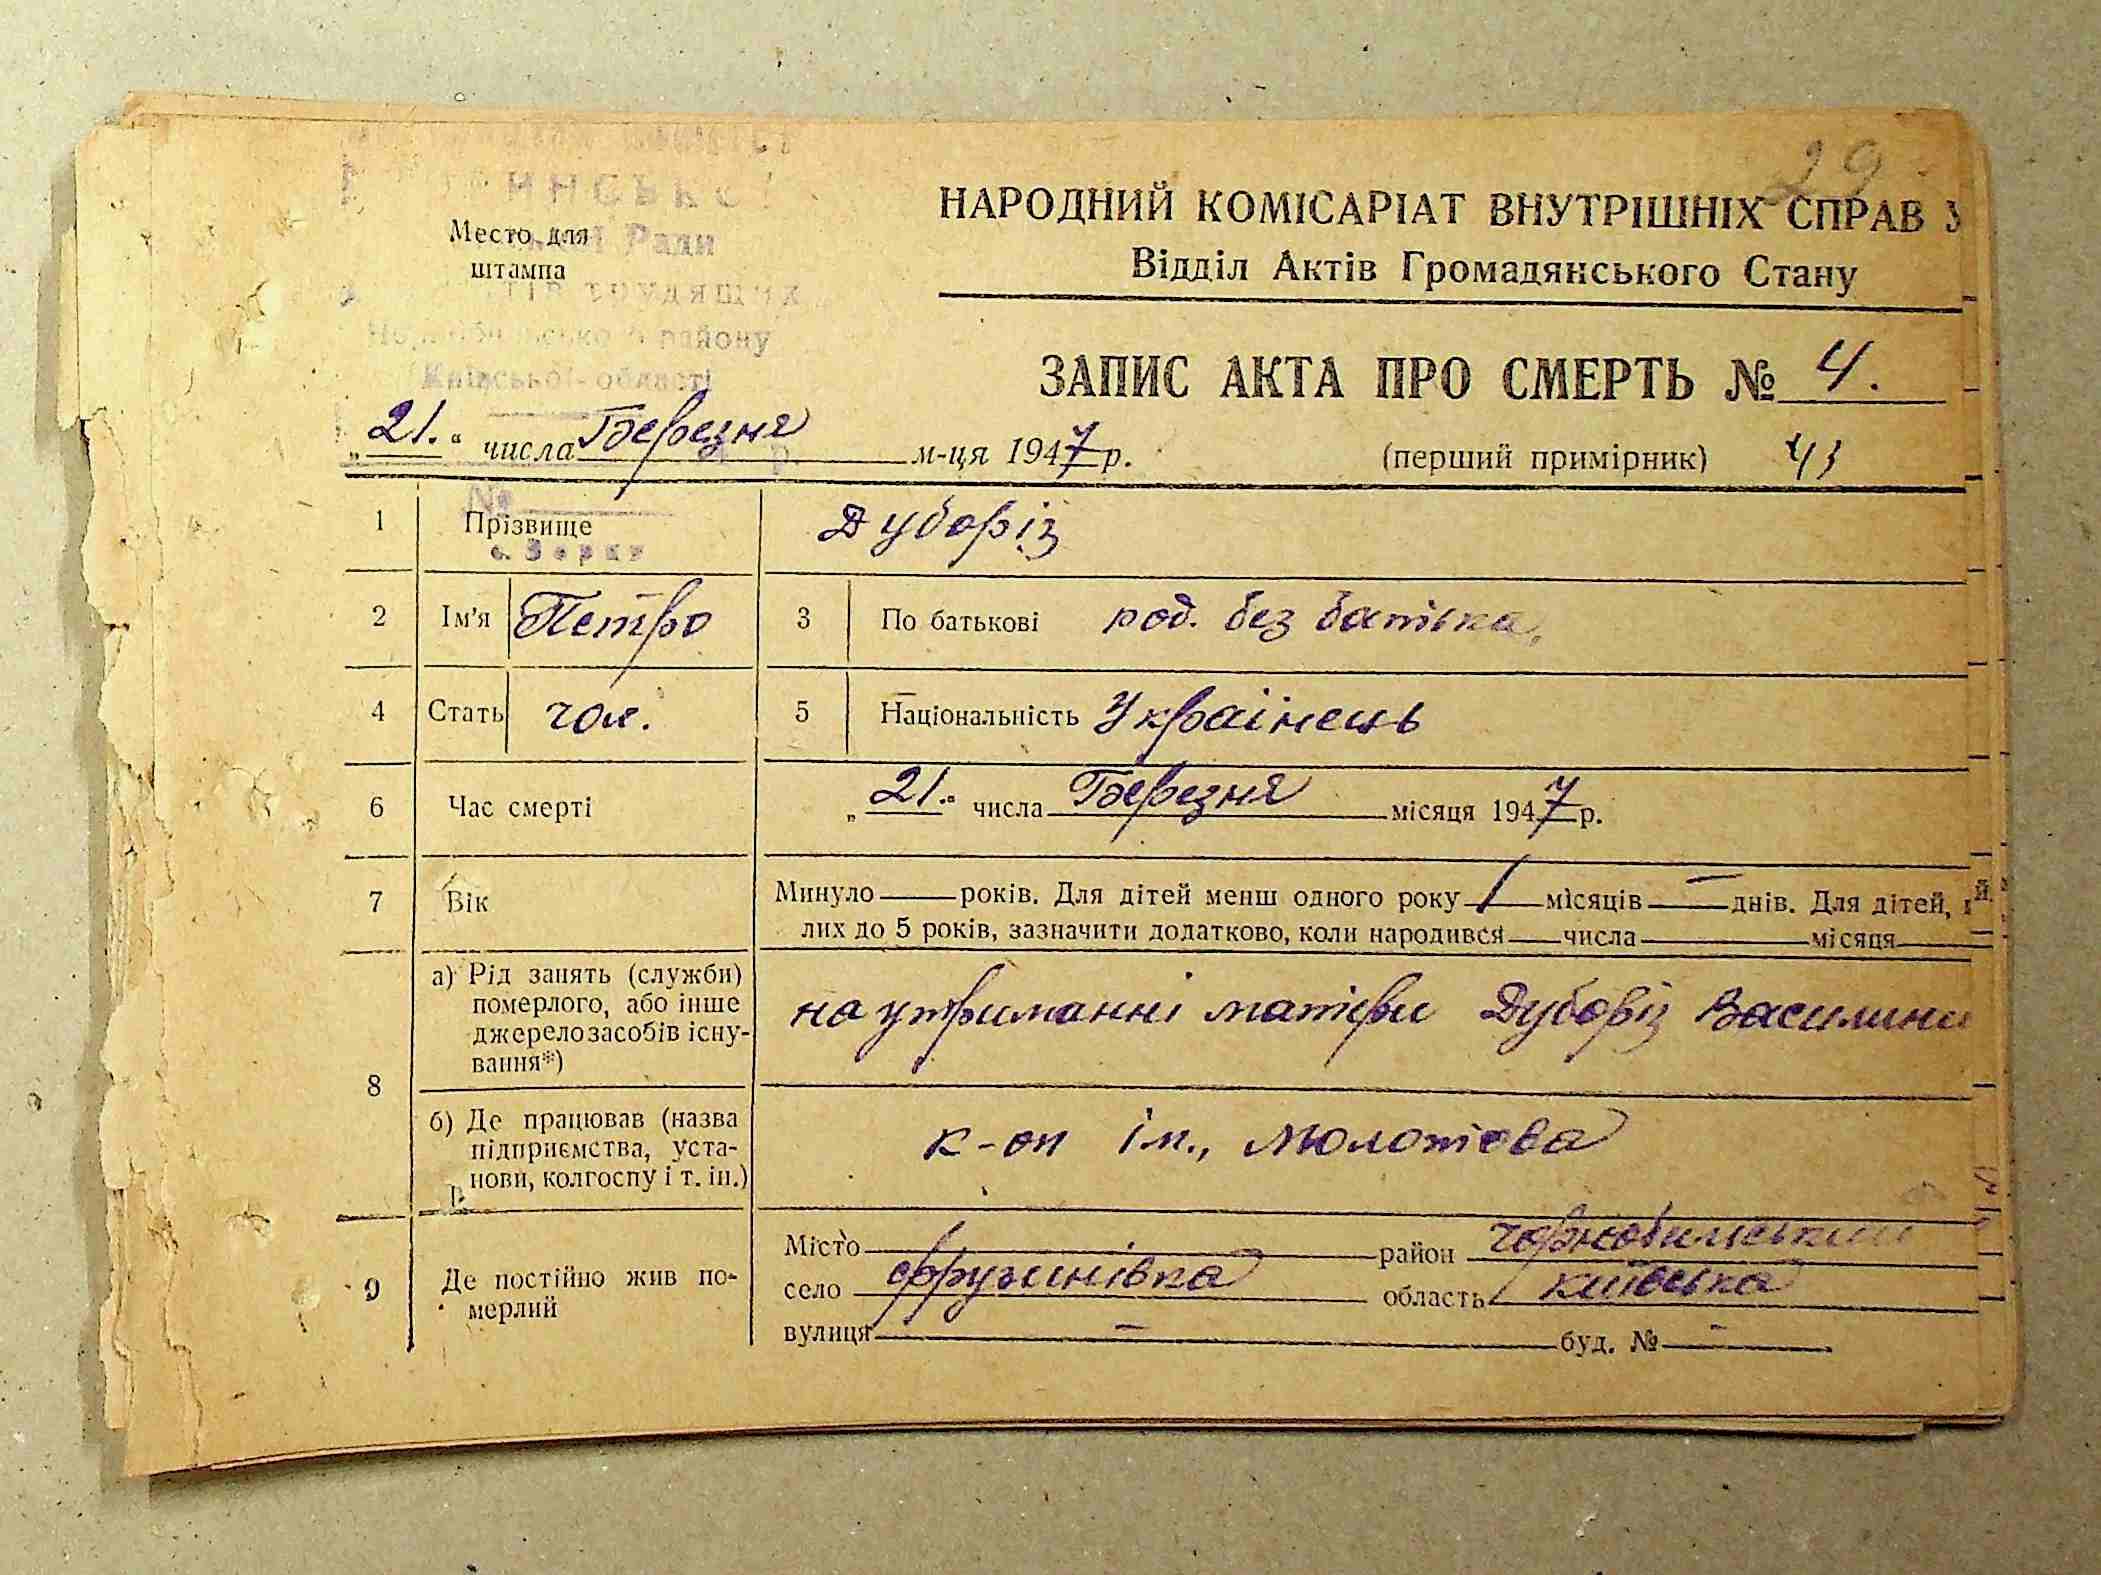 29
НАРОДНИЙ КОМІСАРІАТ ВНУТРІШНІХ СПРАВ У
Відділ Актів Громадянського Стану
Место для
штампа
Ради
трудящих
району
Київської області
ЗАПИС АКТА ПРО СМЕРТЬ № 4.
„21.“ числа Березня м-ця 1947 р. (перший примірник)
№
1 Прізвище Дуборіз
2 Ім'я Петро 3 По батькові род. без батька.
4 Стать чол. 5 Національність Українець
6 Час смерті „21.“ числа Березня місяця 1947 р.
7 Вік Минуло — років. Для дітей менш одного року 1 місяців — днів. Для дітей,
лих до 5 років, зазначити додатково, коли народився — числа — місяця
8 а) Рід занять (служби)
померлого, або інше
джерело засобів існу-
вання*)
на утриманні матери Дуборіз Василини
б) Де працював (назва
підприємства, уста-
нови, колгоспу і т. ін.)
к-оп ім., Молотова
9 Де постійно жив по-
мерлий
Місто — район Чорнобильський
село область Київська
вулиця — буд. № —